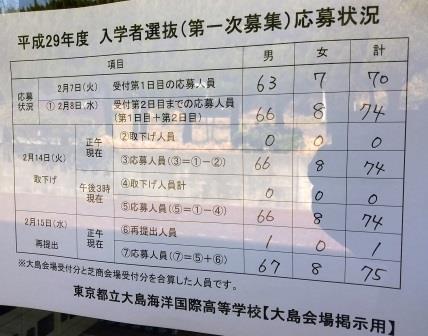 平成29年度 入学者選抜(第一次募集)応募状況
項目 男 女 計
応募状況 2月7日(火) 受付第1日目の応募人員 63 7 70
① 2月8日(水) 受付第2日目までの応募人員 66 8 74
(第1日目+第2日目)
2月14日(火) 取下げ 正午現在 ②取下げ人員 0 0 0
③応募人員(③=①-②) 66 8 74
午後3時現在 ④取下げ人員計 0 0 0
⑤応募人員(⑤=①-④) 66 8 74
2月15日(水) 再提出 正午現在 ⑥再提出人員 1 0 1
⑦応募人員(⑦=⑤+⑥) 67 8 75
※大島会場受付分と芝商会場受付分を合算した人員です。
東京都立大島海洋国際高等学校【大島会場掲示用】